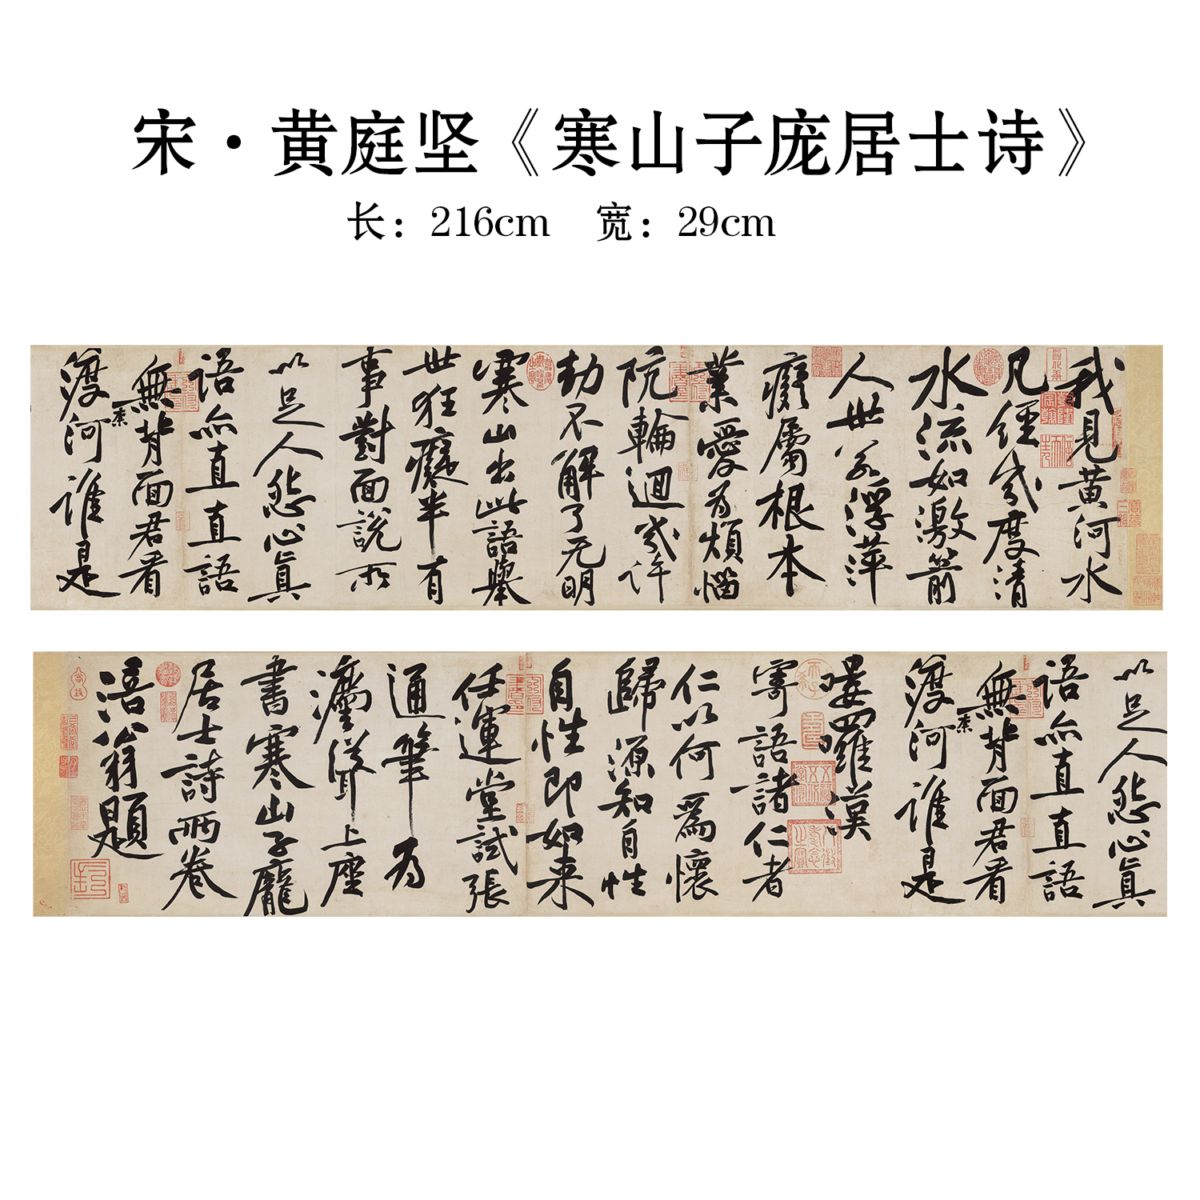 宋·黄庭坚《寒山子庞居士诗》
长：216cm 宽：29cm
我見黄河水
凡經幾度清
水流如激箭
人世若浮萍
癡屬根本
業愛為煩惱
阬輪迴幾許
劫不解了无明
寒山出此語舉
世狂癡半有
事對面說所
以足人怨心真
語亦直直語
無背面君看
柰
渡河誰是
以足人怨心真
語亦直直語
無背面君看
柰
渡河誰是
嘍羅漢
寄語諸仁者
仁以何爲懷
歸源知自性
自性即如来
任運堂試張
通筆为
灋聳上座
書寒山子龐
居士詩兩卷
涪翁題